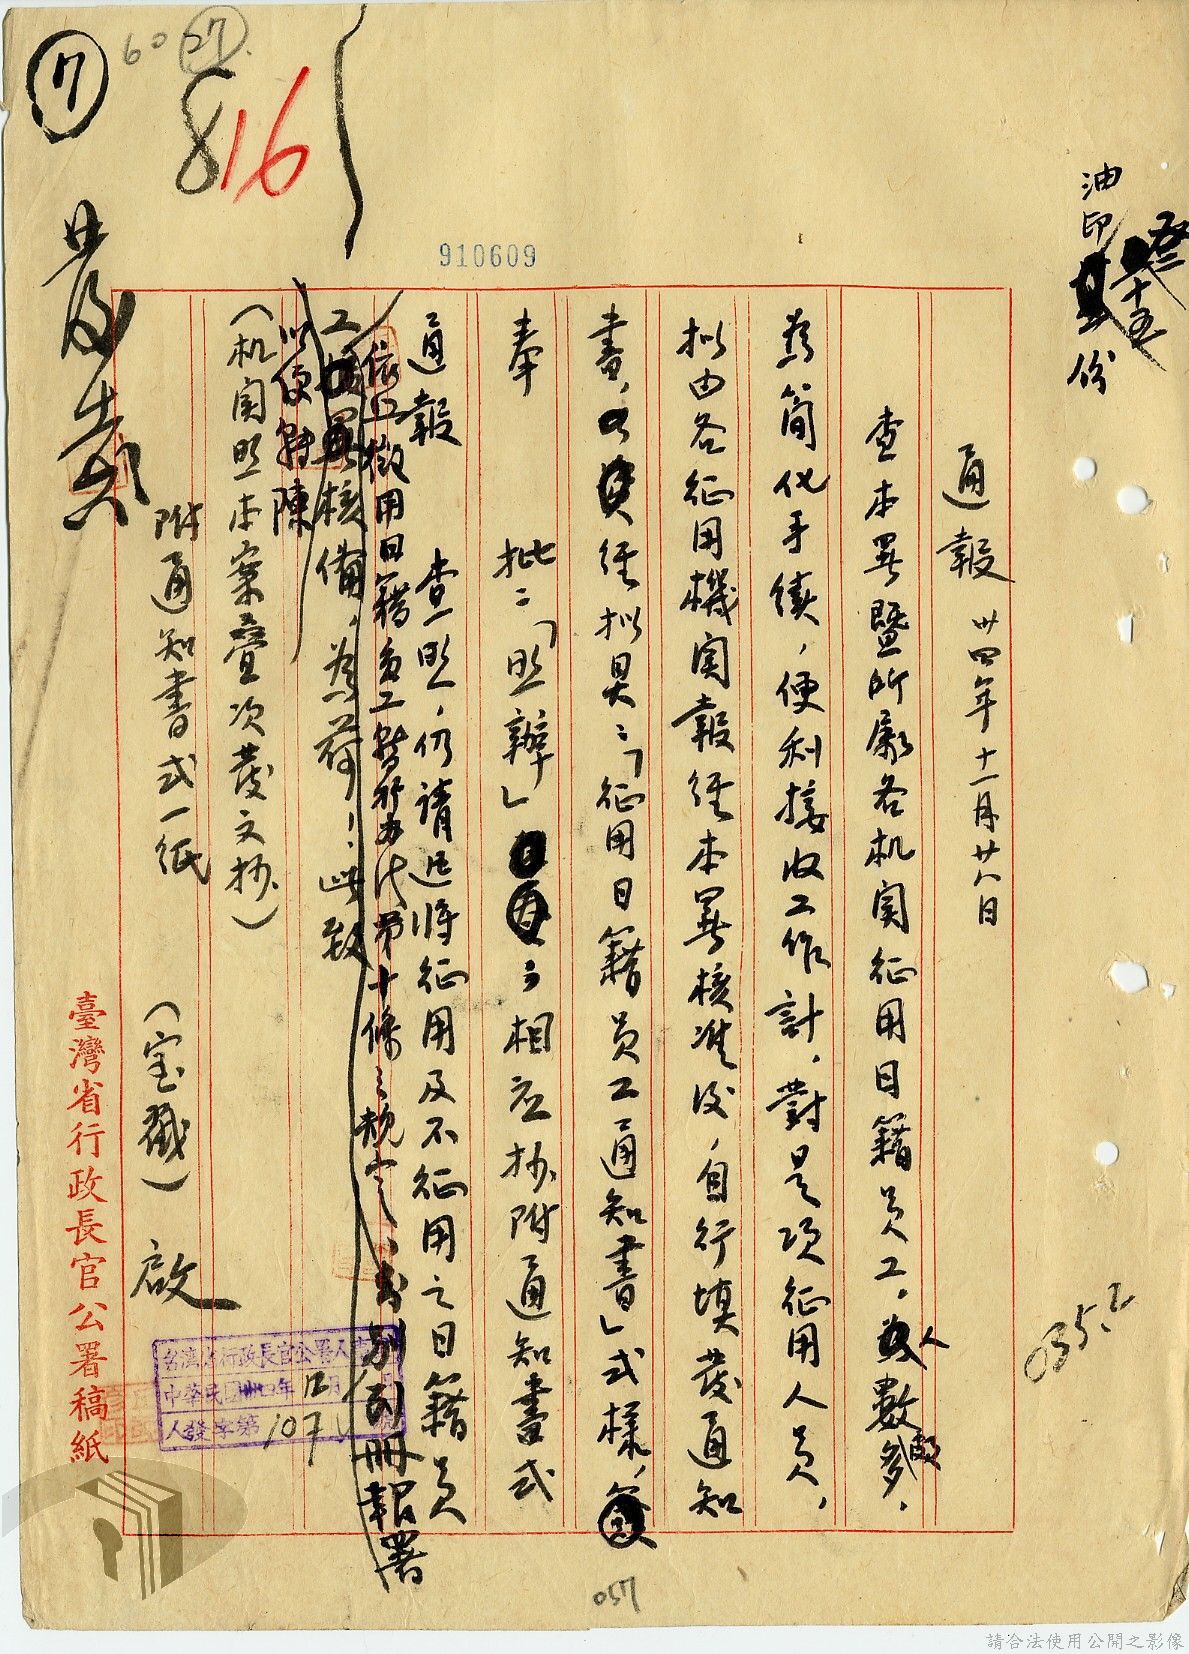 7
60
27
816
910609
油印
份
通報 卅四年十一月廿八日
查本署暨所屬各机関征用日籍員工。人數頗多，
為简化手續，便利接收工作計，對是項征用人員，
拟由各征用機関報经本署核准後，自行填发通知
書，经拟具：「征用日籍員工通知書」式樣，
奉
批：「照辦」相应抄附通知書式
通報
查照，仍請迅將征用及不征用之日籍員
依照徵用日籍員工暫行办法第十條之规定，分別列冊報署
工
核備，為荷！此致
以便轉陳
（机関照本案叠次發文抄）
附通知書式一紙
（宝戳）啟
臺灣省行政長官公署稿紙
台灣省行政長官公署人事
中華民國卅四年
人發字第107
035.2
057
請合法使用公開之影像